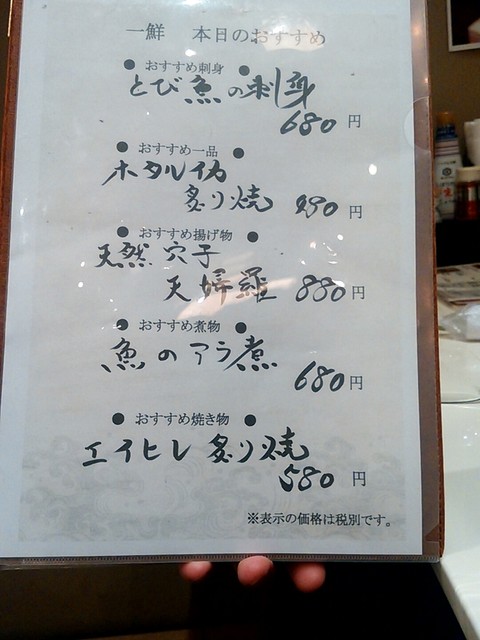 一鮮 本日のおすすめ
● おすすめ刺身 ●
とび魚の刺身
680 円
● おすすめ一品 ●
ホタルイカ
炙り焼 円
● おすすめ揚げ物 ●
天然 穴子
天婦羅 880 円
● おすすめ煮物 ●
魚のアラ煮
680 円
● おすすめ焼き物 ●
エイヒレ 炙り焼
580 円
※表示の価格は税別です。